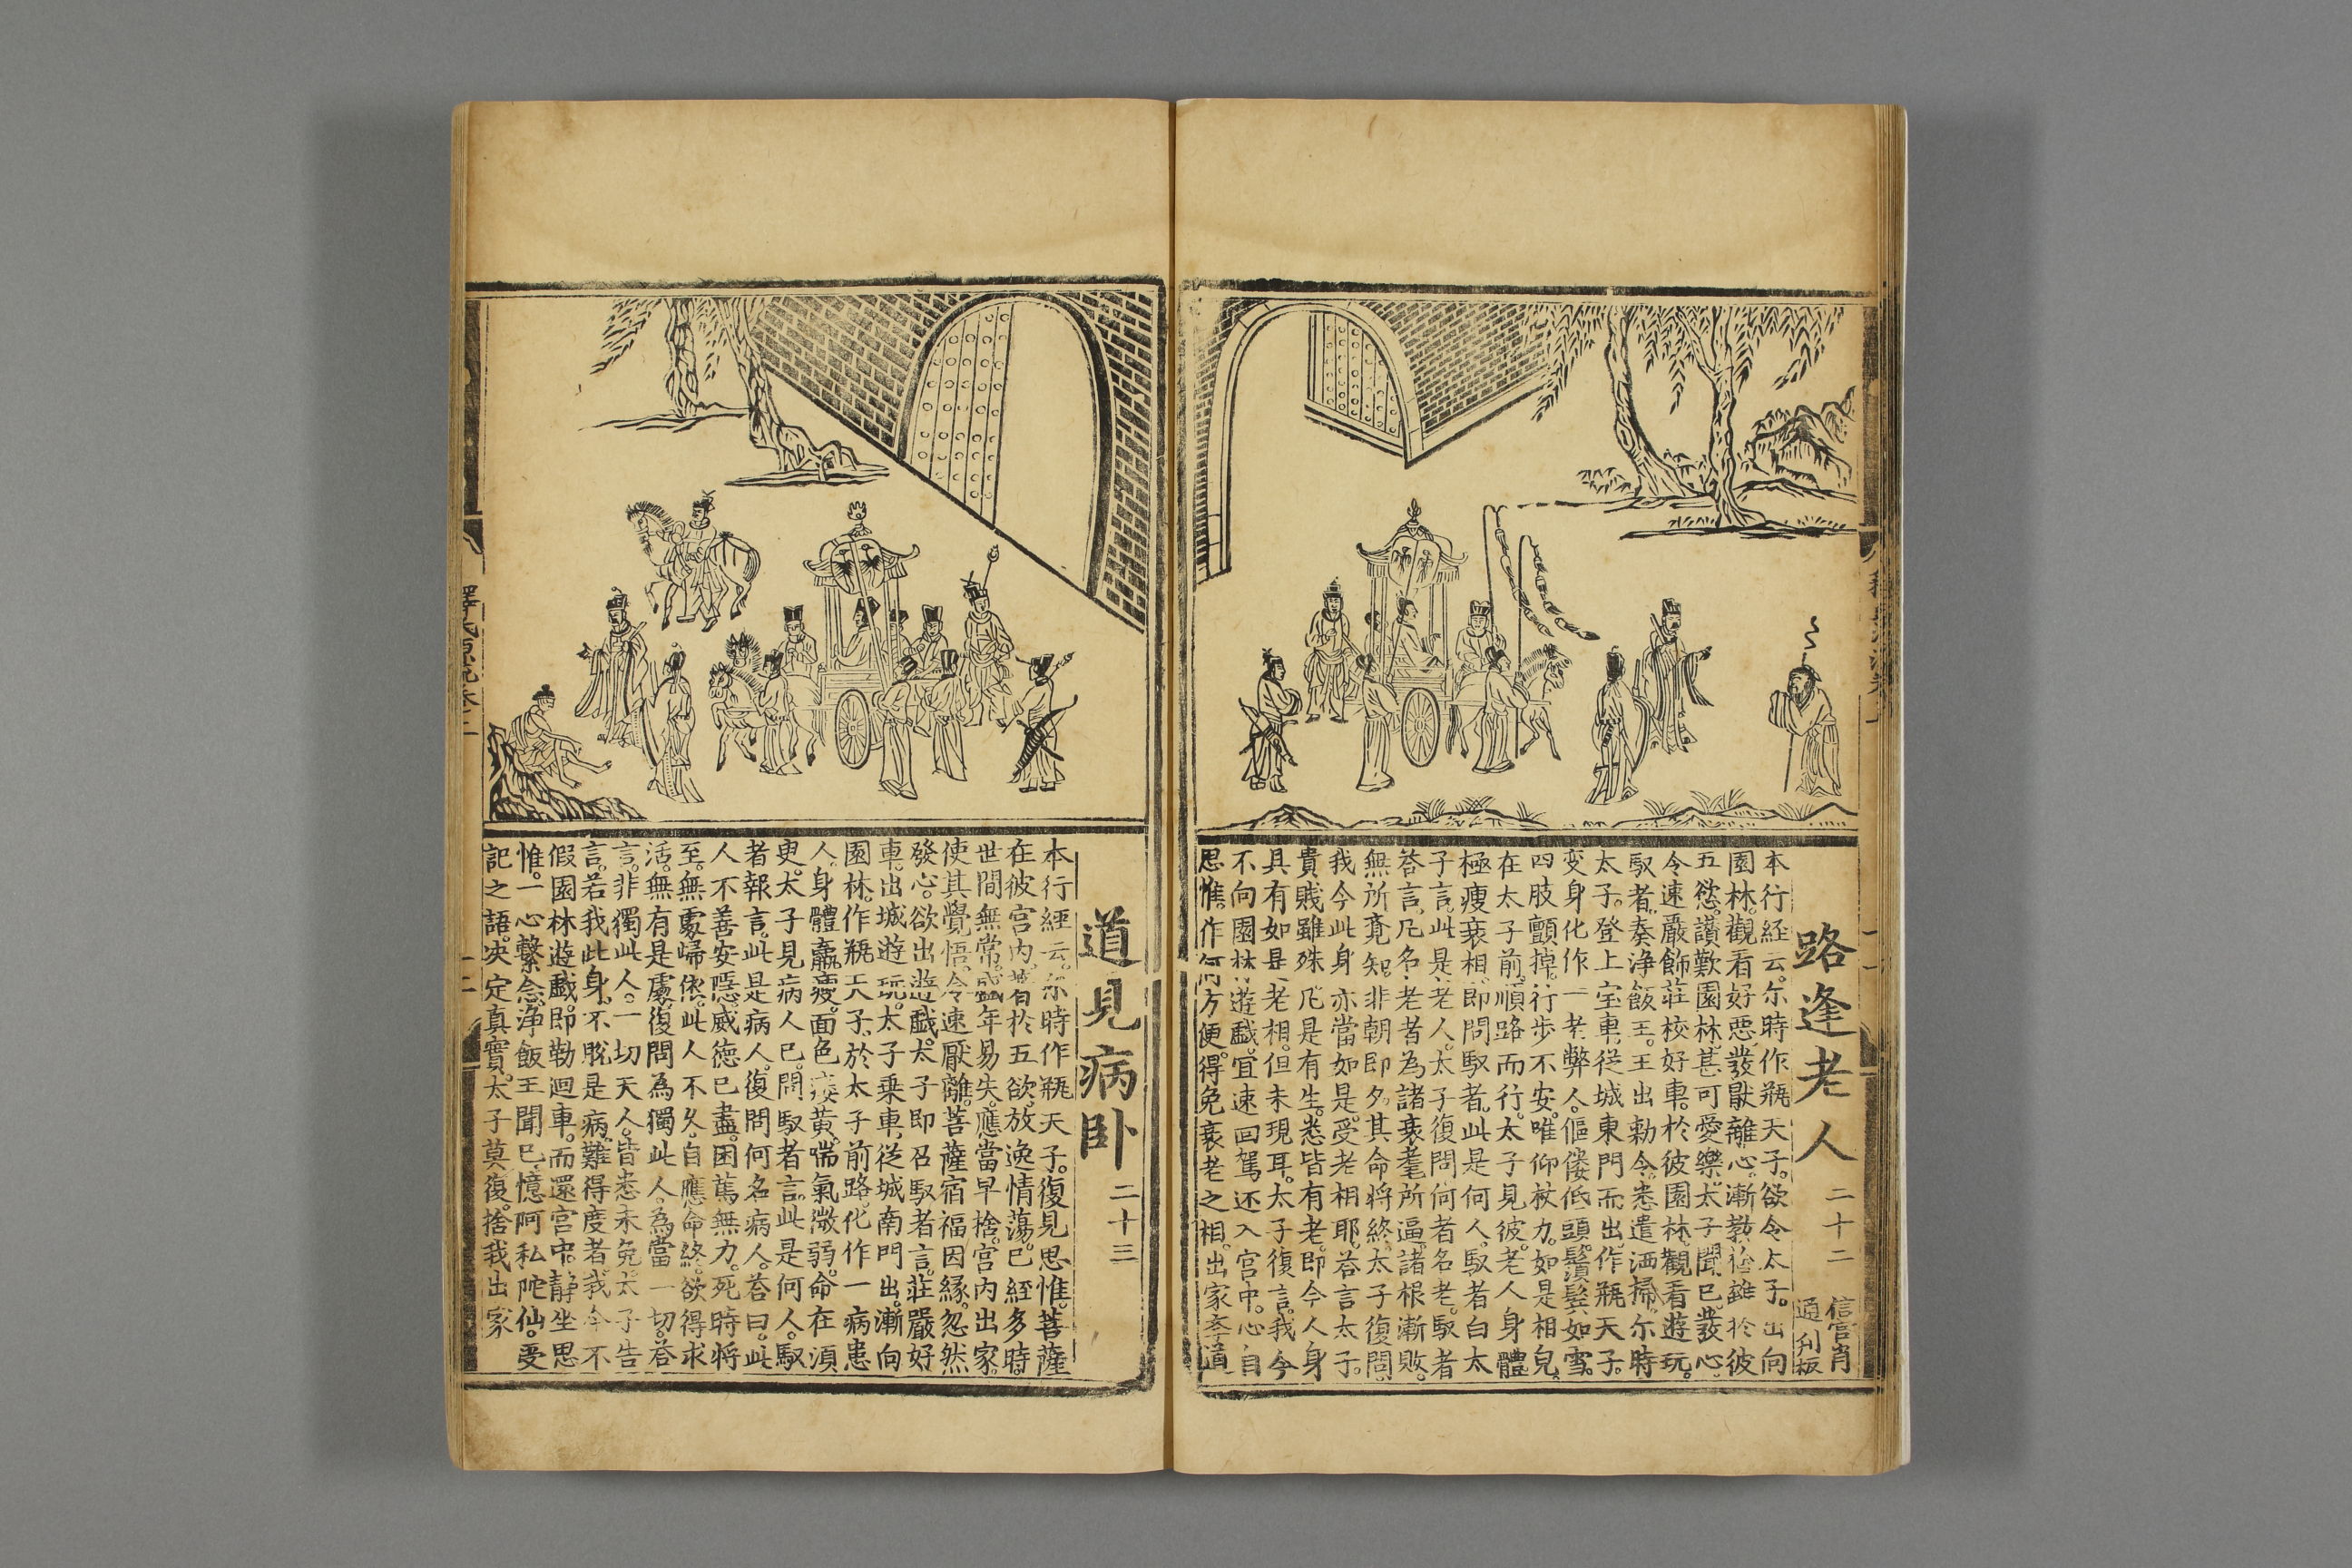 路逢老人 二十二
信官肖
通刋板
本行経云尔時作瓶天子欲令太子出向
園林觀看好惡發猒離心漸教捨離扵彼
五慾讃歎園林甚可愛樂太子聞已發心
令速嚴飾莊校好車扵彼園林觀看遊玩
馭者奏浄飯王王出勅令悉遣洒掃尓時
太子登上宝車從城東門而出作瓶天子
变身化作一老弊人傴僂低頭鬚鬂如雪
四肢顫掉行步不安唯仰杖力如是相皃
在太子前順路而行太子見彼老人身體
極瘦衰相即問馭者此是何人馭者白太
子言此是老人太子復問何者名老馭者
荅言凡名老者為諸衰耄所逼諸根漸敗
無所覔知非朝即夕其命将終太子復問
我今此身亦當如是受老相耶荅言太子
貴賎雖殊凡是有生悉皆有老即今人身
具有如是老相但未現耳太子復言我今
不向園林遊戲宜速回駕还入宫中心自
思惟作何方便得免衰老之相出家孝道
道見病卧 二十三
本行經云尓時作瓶天子復見思惟菩薩
在彼宫内著扵五欲放逸情蕩已経多時
世間無常盛年易失應當早捨宫内出家
使其覺悟令速厭離菩薩宿福因縁忽然
發心欲出遊戲太子即召馭者言莊嚴好
車出城遊玩太子乗車從城南門出漸向
園林作瓶天子於太子前路化作一病患
人身體羸瘦面色痿黄喘氣㣲弱命在湏
臾太子見病人已問馭者言此是何人馭
者報言此是病人復問何名病人荅曰此
人不善安隱威徳已盡困篤無力死時将
至無處歸依此人不久自應命終欲得求
活無有是處復問為獨此人為當一切荅
言非獨此人一切天人皆悉未免太子告
言若我此身不脫是病難得度者我今不
假園林遊戲即勒迴車而還宫中静坐思
惟一心繫念浄飯王聞已憶阿私陀仙受
記之語决定真實太子莫復捨我出家
釋氏源流卷上